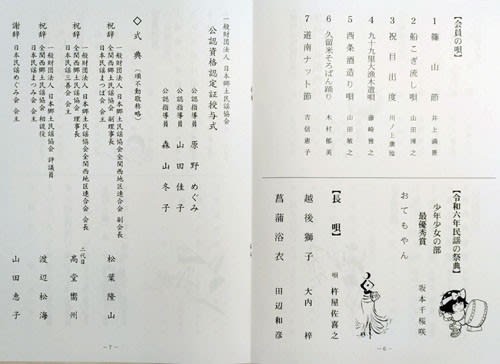 【会員の唄】
1 篠山節 井上満壽
2 船こぎ流し唄 山田博之
3 祝目出度 川ノ上廣治
4 九十九里大漁木遣唄 藤崎雅之
5 西条酒造り唄 山田敏之
6 久留米そろばん踊り 木村郁美
7 道南ナット節 吉信恵子
【令和六年民謡の祭典】
少年少女の部
最優秀賞
おてもやん 坂本千桜咲
【長唄】
唄 杵屋佐喜之
越後獅子 大内梓
菖蒲浴衣 田辺和彦
－6－
一般財団法人 日本郷土民謡協会
公認資格認定証授与式
公認指導員 原野めぐみ
公認指導員 山田佳子
公認指導員 森山冬子
◇式典（順不動敬称略）
祝辞 一般財団法人 日本郷土民謡協会 副会長
一般財団法人 日本郷土民謡協会全関西地区連合会 会長
日本民謡まつば会 会主 松葉隆山
祝辞 一般財団法人 日本郷土民謡協会全関西地区連合会
全関西民謡協会 副理事長
日本民謡三善会 会主 二代目 高堂嚮州
祝辞 一般財団法人 日本郷土民謡協会 評議員
全関西民謡協会 相談役
日本民謡まつば会 渡辺松海
謝辞 日本民謡めぐみ会 会主 山田恵子
－7－